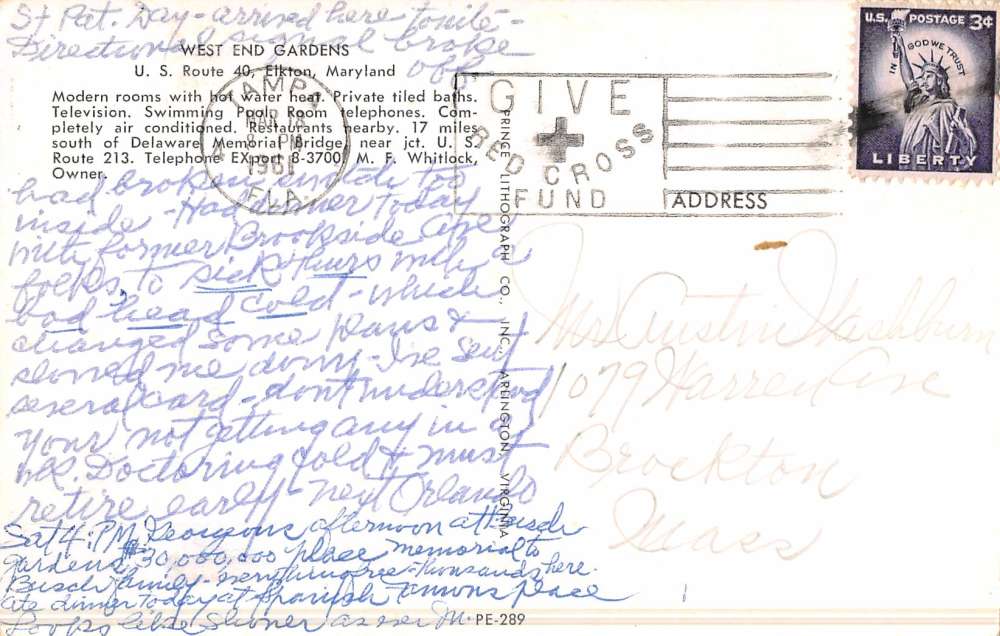 St Pat. Day - arrived here tonite -
Directional signal broke
off
WEST END GARDENS
U. S. Route 40, Elkton, Maryland
Modern rooms with hot water heat. Private tiled baths.
Television. Swimming Pool. Room telephones. Com-
pletely air conditioned. Restaurants nearby. 17 miles
south of Delaware Memorial Bridge, near jct. U. S.
Route 213. Telephone EXport 8-3700, M. F. Whitlock,
Owner.
had broken too
inside - Had dinner today
with former Brookside Ave
folks, to sick Thurs with a
bad head cold - which
changed some plans &
slowed me down - I've sent
several card - don't understand
your not getting any in a
wk. Doctoring cold & must
retire early - next Orlando
Sat 4:PM. afternoon at Busch
Gardens, $30,000,000 place memorial to
Busch family - everything free - thousands here.
Ate dinner today at Spanish famous place
Looks like as ever M.
TAMPA
FLA.
MAR 18
8 PM
1961
GIVE
RED CROSS
FUND
U.S. POSTAGE 3¢
IN GOD WE TRUST
LIBERTY
PRINCE LITHOGRAPH CO., INC., ARLINGTON, VIRGINIA
ADDRESS
Mr Austin Washburn
1079 Warren Ave
Brockton
Mass
PE-289